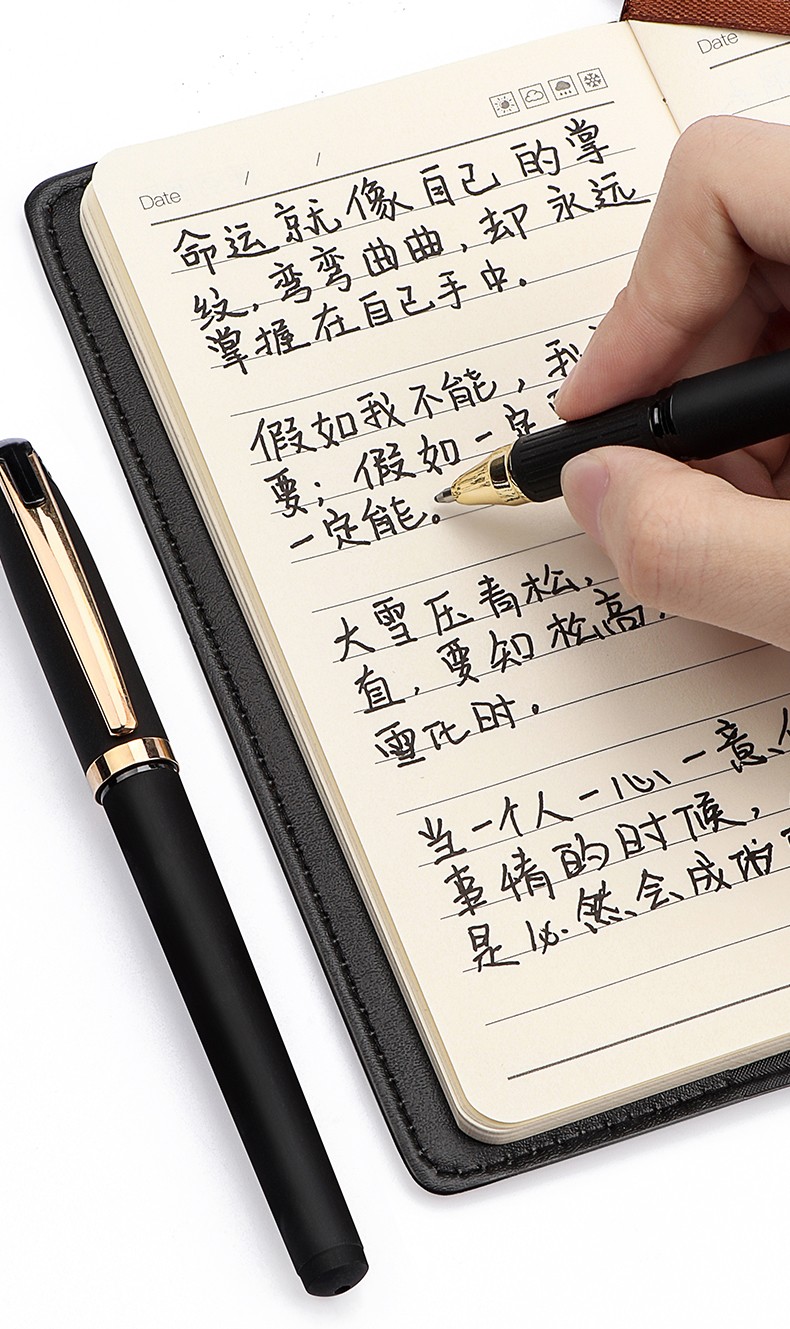 Date / /
Date
命运就像自己的掌
纹，弯弯曲曲，却永远
掌握在自己手中。
假如我不能，我
要；假如一定
一定能。
大雪压青松，
直，要知松高，
雪化时。
当一个人一心一意
事情的时候，
是必然会成功